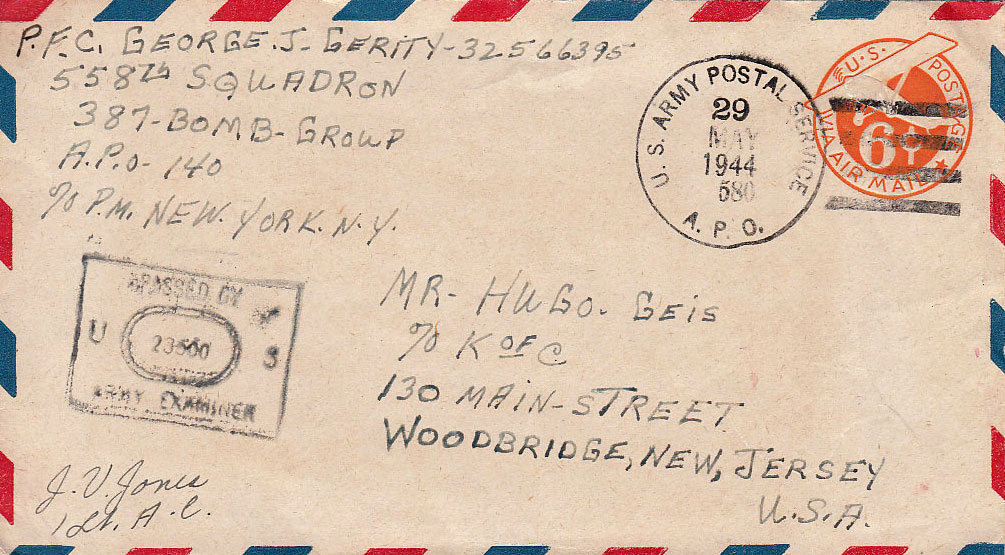 P.F.C. GEORGE. J- GERITY-32566395
558th SQUADRON
387-BOMB-GROUP
A.P.O- 140
c/o P.M. NEW. YORK. N.Y.
U.S. ARMY POSTAL SERVICE
29
MAY
1944
580
A. P. O.
U.S. POSTAGE
6¢
VIA AIR MAIL
PASSED BY
U S
ARMY EXAMINER
MR- HUGO. GEIS
c/o K OF C
130 MAIN-STREET
WOODBRIDGE, NEW, JERSEY
U.S.A.
J. V. Jones
1 Lt. A.C.